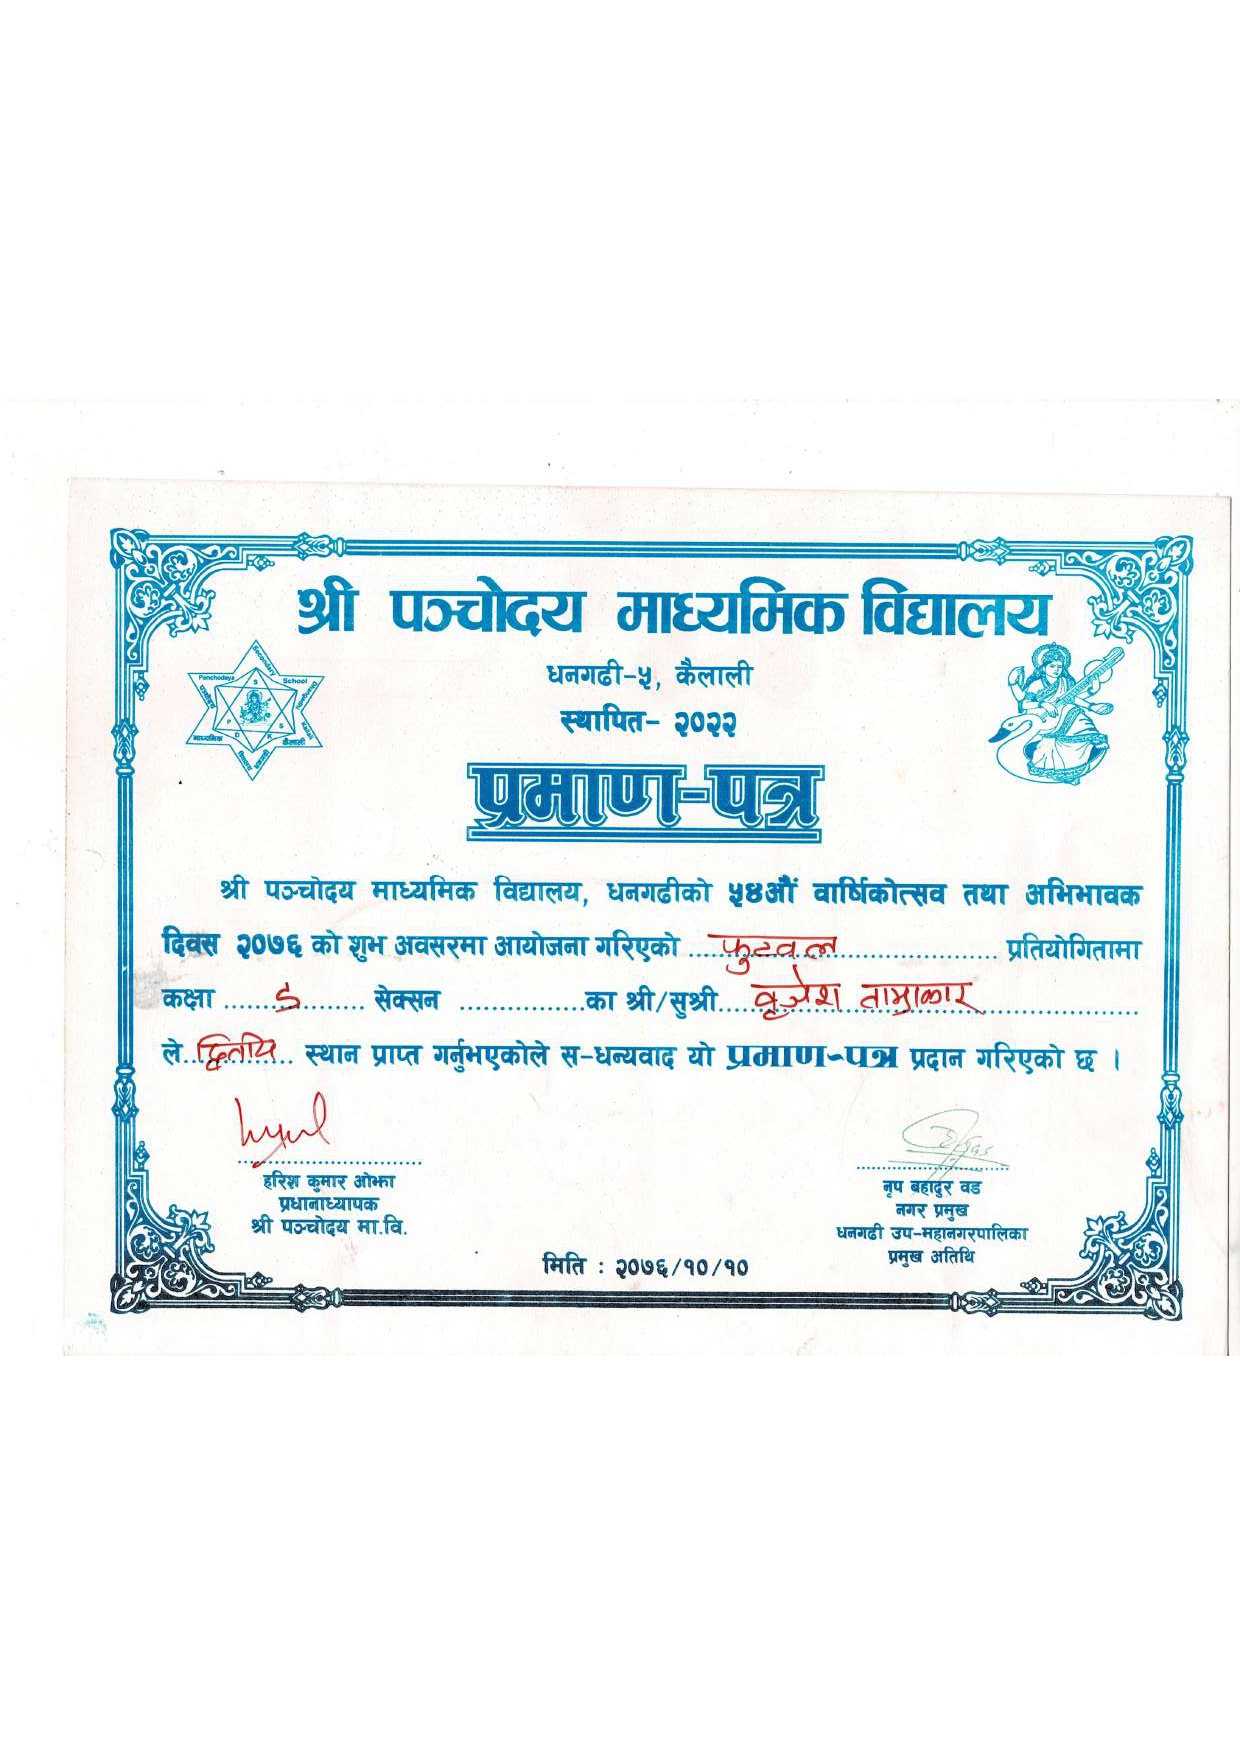 श्री पञ्चोदय माध्यमिक विद्यालय
धनगढी-५, कैलाली
स्थापित- २०२२
Panchodaya Secondary School
माध्यमिक
कैलाली
प्रमाण-पत्र
श्री पञ्चोदय माध्यमिक विद्यालय, धनगढीको ५४औं वार्षिकोत्सव तथा अभिभावक
दिवस २०७६ को शुभ अवसरमा आयोजना गरिएको फुटवल प्रतियोगितामा
कक्षा ............ सेक्सन ............का श्री/सुश्री... वृजेश ताम्राकार
ले द्वितीय स्थान प्राप्त गर्नुभएकोले स-धन्यवाद यो प्रमाण-पत्र प्रदान गरिएको छ ।
हरिश कुमार ओझा
प्रधानाध्यापक
श्री पञ्चोदय मा.वि.
नृप बहादुर वड
नगर प्रमुख
धनगढी उप-महानगरपालिका
प्रमुख अतिथि
मिति : २०७६/१०/१०